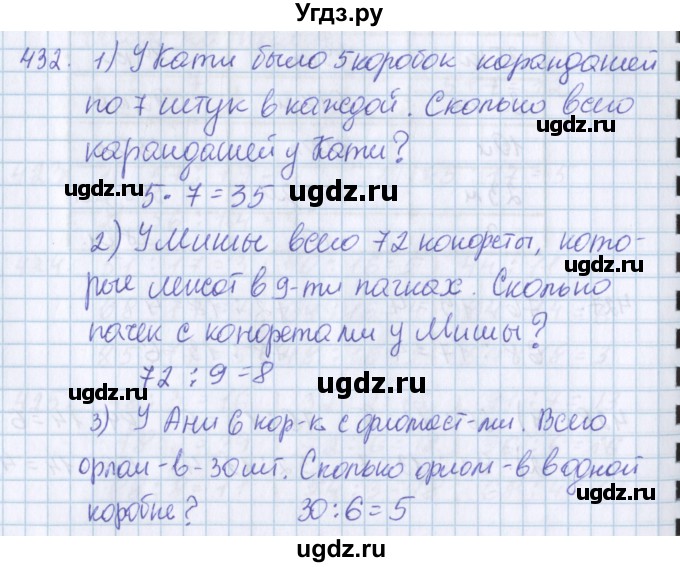 Угдз.ру
432. 1) У Кати было 5 коробок карандашей
по 7 штук в каждой. Сколько всего
ugdz.ru
карандашей у Кати?
ugdz.ru ugdz.ru
5 · 7 = 35
2) У Мишы всего 72 конфеты, кото-
ugdz.ru
рые лежат в 9-ти пачках. Сколько
ugdz.ru
пачек с конфетами у Мишы?
72 : 9 = 8
ugdz.ru ugdz.ru
3) У Ани 6 кор-к с фломаст-ми. Всего
флом-в - 30 шт. Сколько флом-в в одной
ugdz.ru
коробке? 30 : 6 = 5
ugdz.ru
ugdz.ru